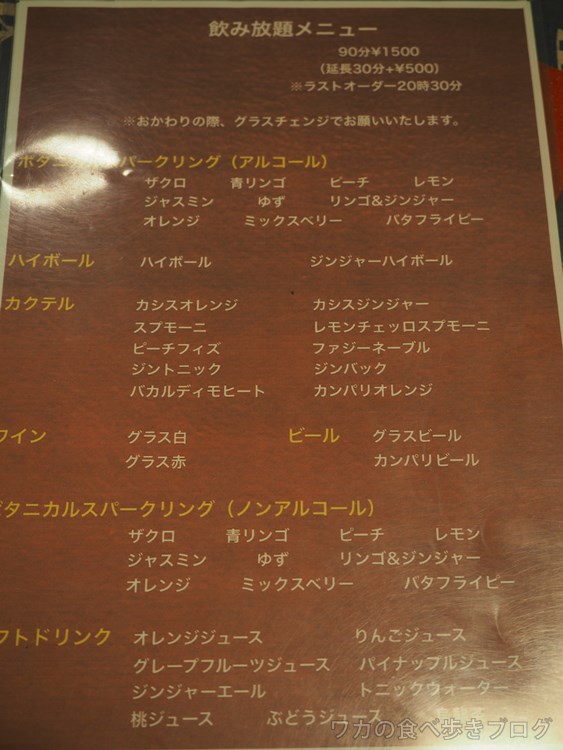 飲み放題メニュー
90分¥1500
（延長30分+¥500）
※ラストオーダー20時30分
※おかわりの際、グラスチェンジでお願いいたします。
ボタニカルスパークリング（アルコール）
ザクロ 青リンゴ ピーチ レモン
ジャスミン ゆず リンゴ&ジンジャー
オレンジ ミックスベリー バタフライピー
ハイボール ハイボール ジンジャーハイボール
カクテル カシスオレンジ カシスジンジャー
スプモーニ レモンチェッロスプモーニ
ピーチフィズ ファジーネーブル
ジントニック ジンバック
バカルディモヒート カンパリオレンジ
ワイン グラス白 ビール グラスビール
グラス赤 カンパリビール
ボタニカルスパークリング（ノンアルコール）
ザクロ 青リンゴ ピーチ レモン
ジャスミン ゆず リンゴ&ジンジャー
オレンジ ミックスベリー バタフライピー
フトドリンク オレンジジュース りんごジュース
グレープフルーツジュース パイナップルジュース
ジンジャーエール トニックウォーター
桃ジュース ぶどうジュース
ワカの食べ歩きブログ